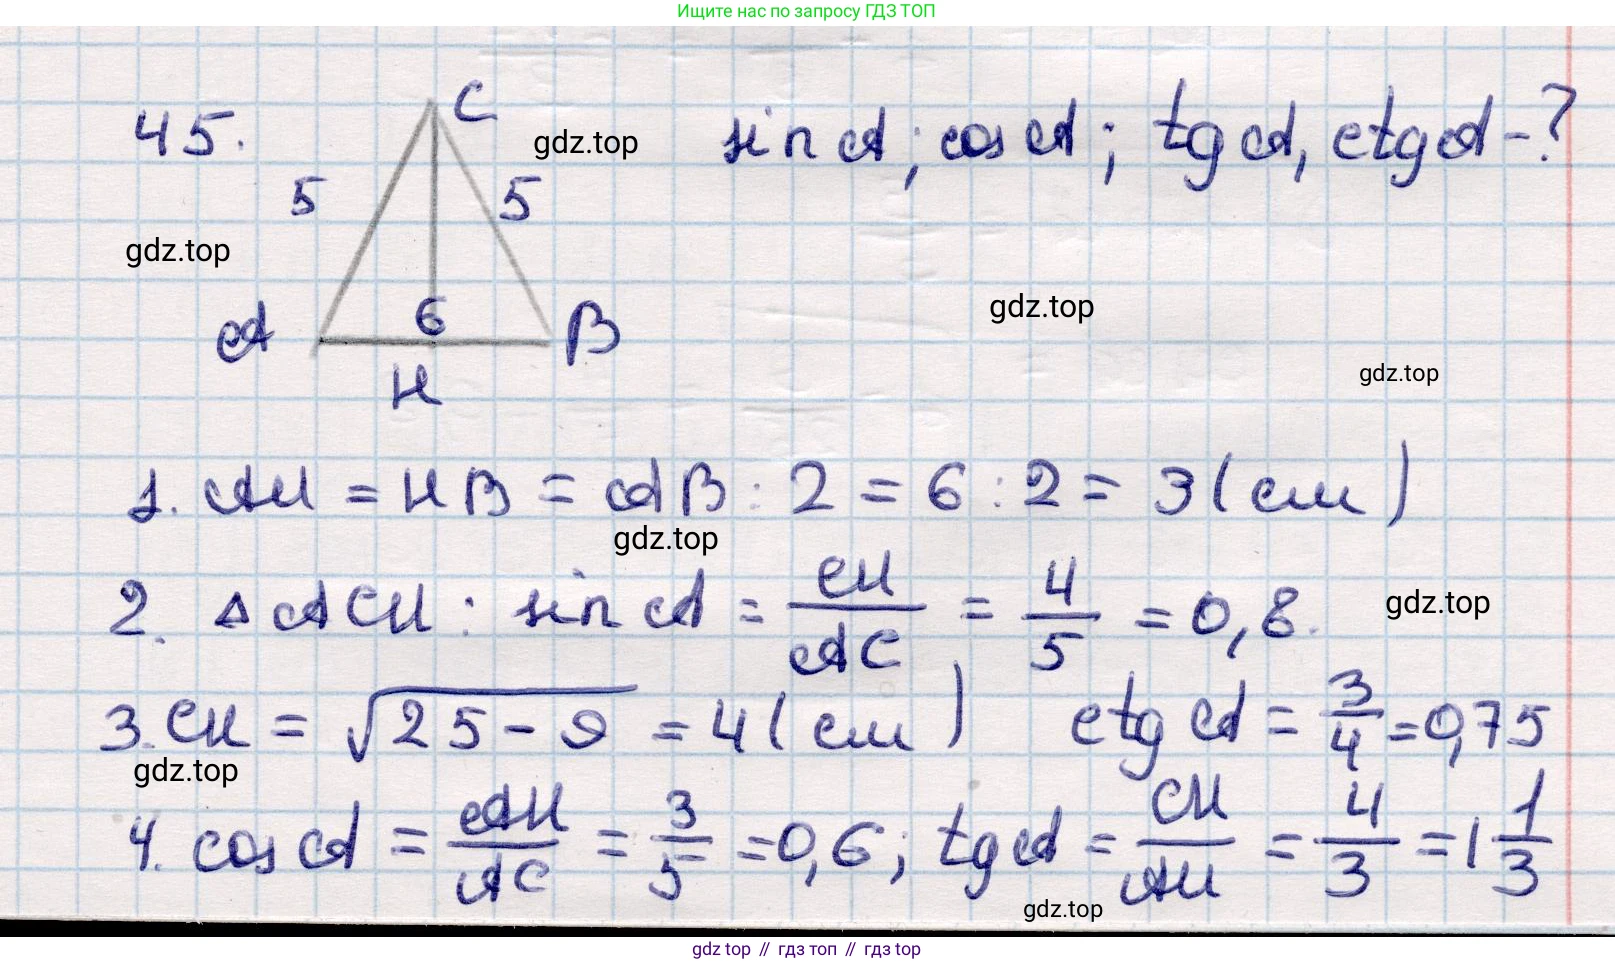 Ищите нас по запросу ГДЗ ТОП
45.
C
sin A; cos A; tg A, ctg A - ?
gdz.top
5
5
gdz.top
6
A
B
H
gdz.top
gdz.top
1. AH = HB = AB : 2 = 6 : 2 = 3 (см)
gdz.top
2. △ACH : sin A = CH/AC = 4/5 = 0,8.
gdz.top
3. CH = √25-9 = 4 (см) ctg A = 3/4 = 0,75
gdz.top
4. cos A = AH/AC = 3/5 = 0,6; tg A = CH/AH = 4/3 = 1 1/3
gdz.top
gdz top // гдз топ // гдз top